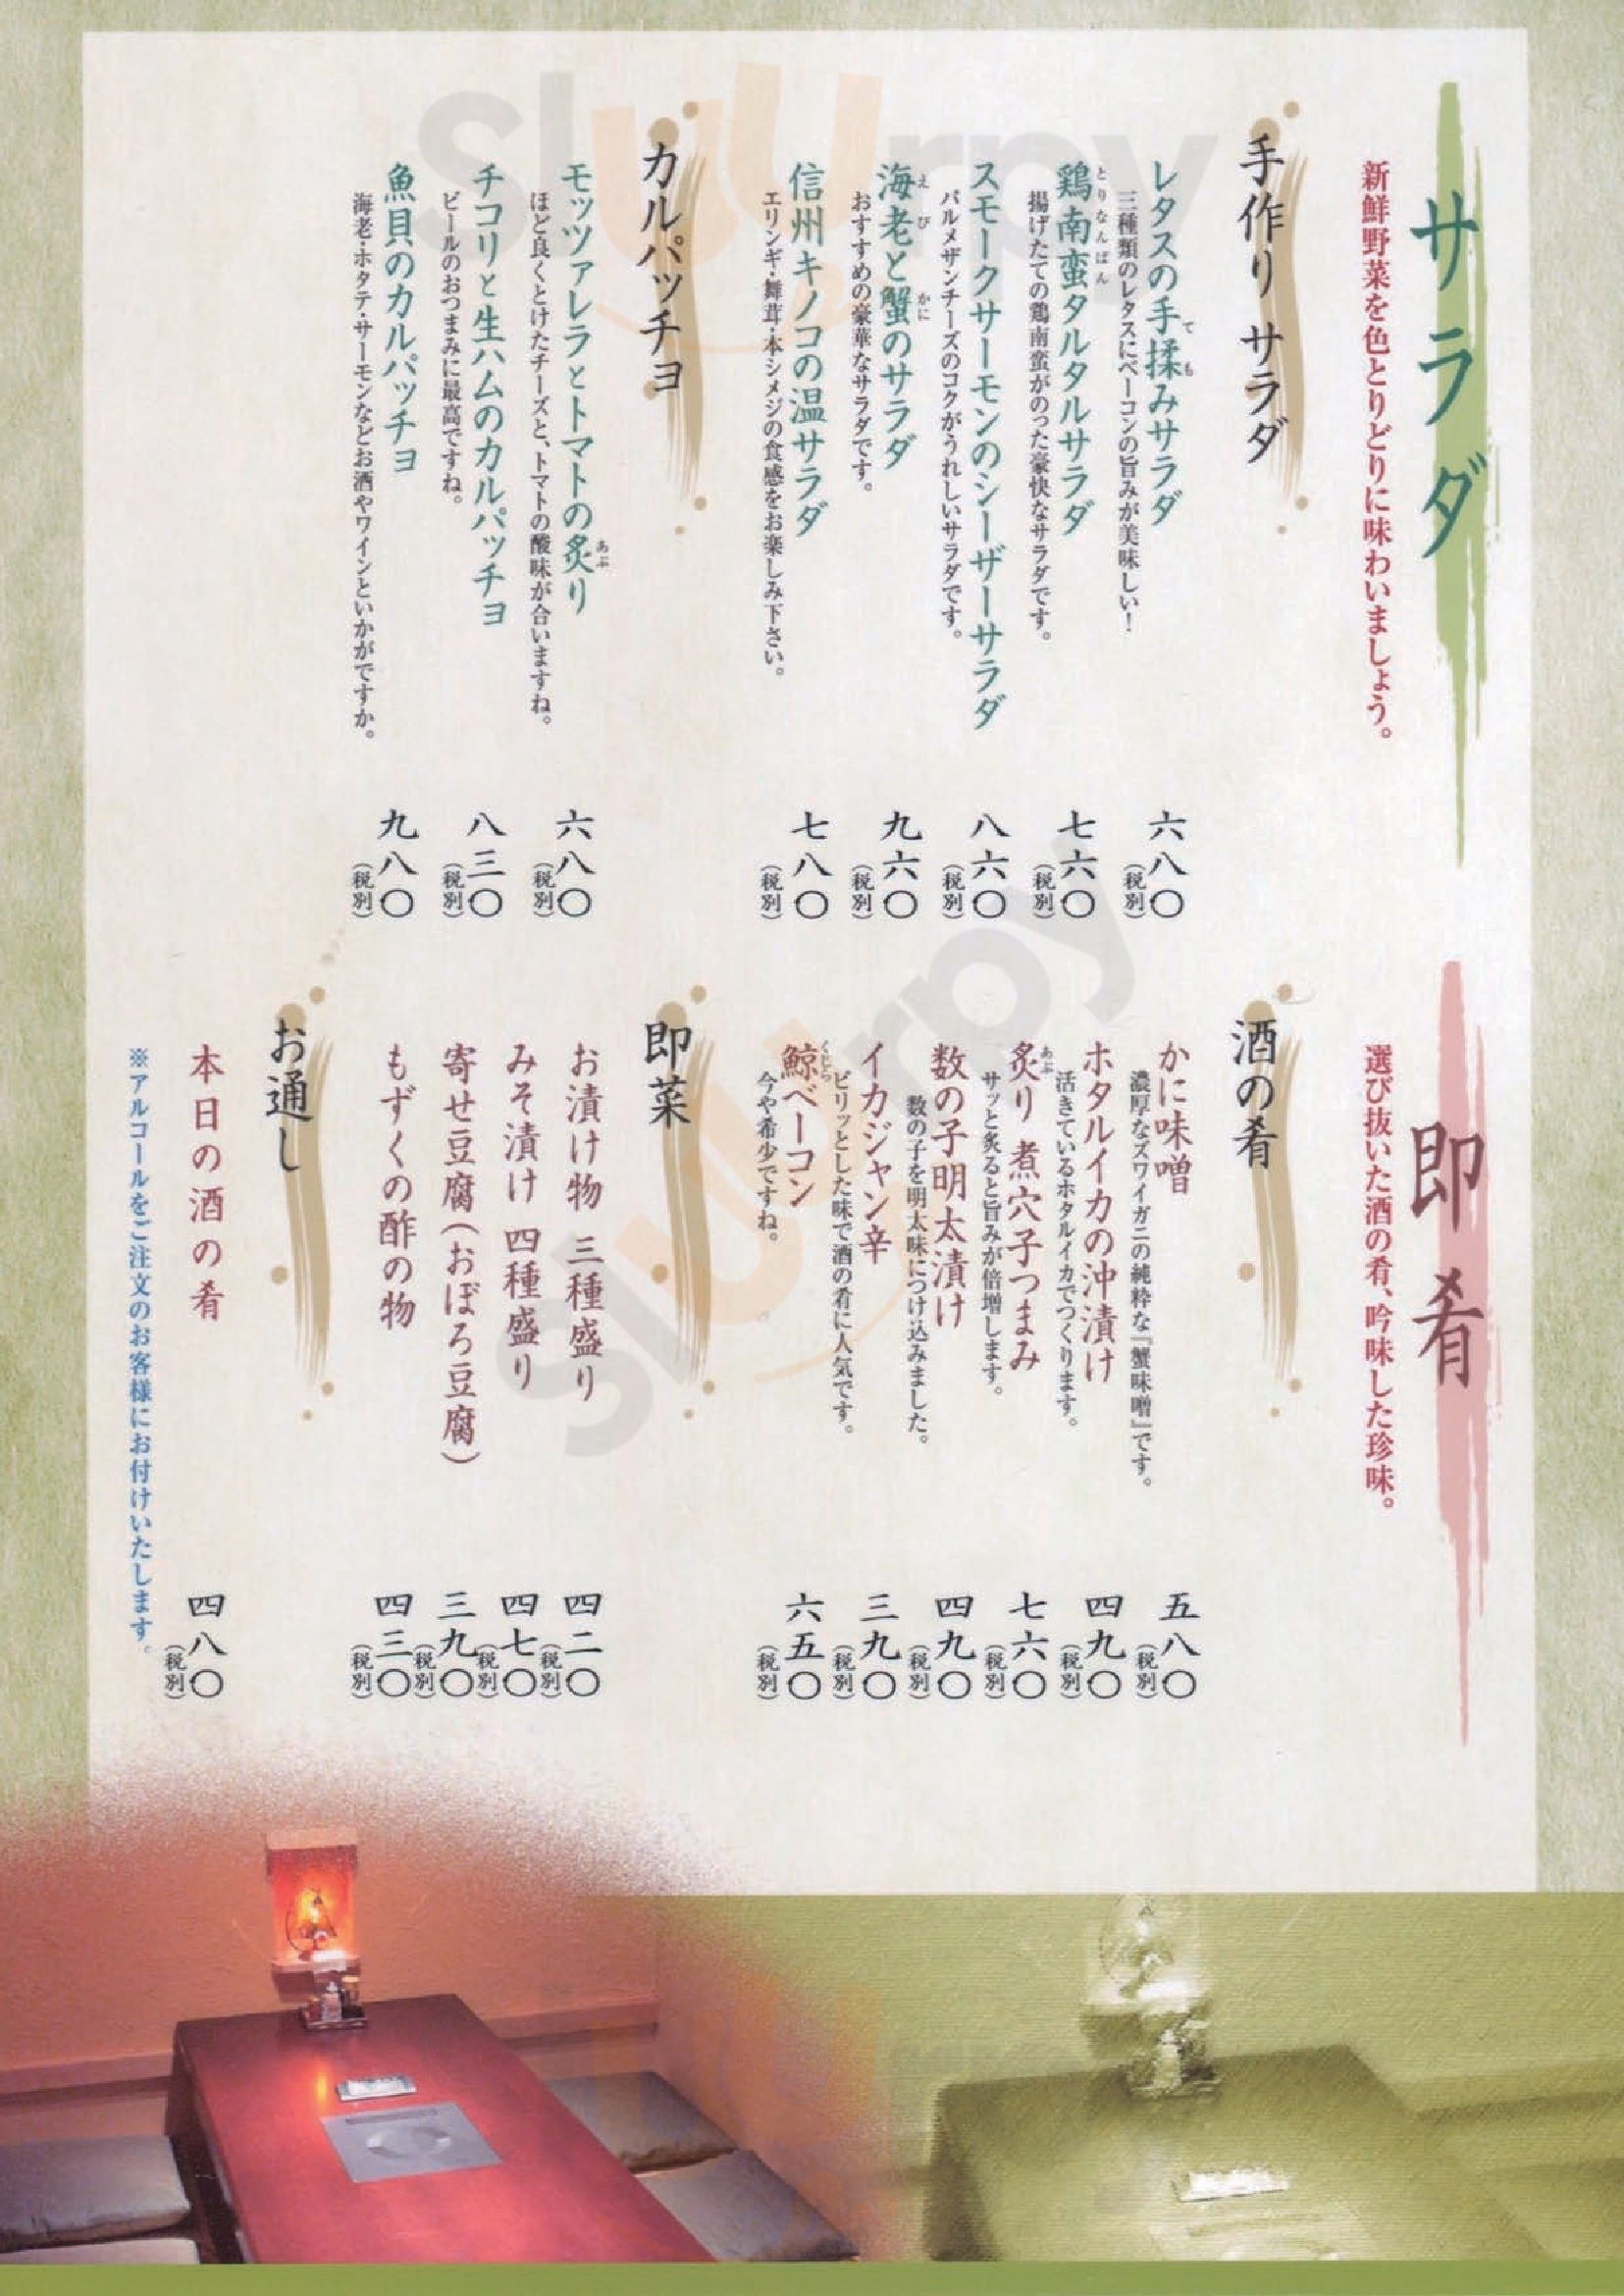 サラダ
新鮮野菜を色とりどりに味わいましょう。
手作り サラダ
レタスの手揉みサラダ
三種類のレタスにベーコンの旨みが美味しい！
六八〇
（税別）
鶏南蛮タルタルサラダ
揚げたての鶏南蛮がのった豪快なサラダです。
七六〇
（税別）
スモークサーモンのシーザーサラダ
パルメザンチーズのコクがうれしいサラダです。
八六〇
（税別）
海老と蟹のサラダ
おすすめの豪華なサラダです。
九六〇
（税別）
信州キノコの温サラダ
エリンギ・舞茸・本シメジの食感をお楽しみ下さい。
七八〇
（税別）
カルパッチョ
モッツァレラとトマトの炙り
ほど良くとけたチーズと、トマトの酸味が合いますね。
六八〇
（税別）
チコリと生ハムのカルパッチョ
ビールのおつまみに最高ですね。
八三〇
（税別）
魚貝のカルパッチョ
海老・ホタテ・サーモンなどお酒やワインといかがですか。
九八〇
（税別）
即肴
選び抜いた酒の肴、吟味した珍味。
酒の肴
かに味噌
濃厚なズワイガニの純粋な『蟹味噌』です。
五八〇
（税別）
ホタルイカの沖漬け
活きているホタルイカでつくります。
四九〇
（税別）
炙り 煮穴子つまみ
サッと炙ると旨みが倍増します。
七六〇
（税別）
数の子明太漬け
数の子を明太味につけ込みました。
四九〇
（税別）
イカジャン辛
ピリッとした味で酒の肴に人気です。
三九〇
（税別）
鯨ベーコン
今や希少ですね。
六五〇
（税別）
即菜
お漬け物 三種盛り
四二〇
（税別）
みそ漬け 四種盛り
四七〇
（税別）
寄せ豆腐（おぼろ豆腐）
三九〇
（税別）
もずくの酢の物
四三〇
（税別）
お通し
本日の酒の肴
四八〇
（税別）
※アルコールをご注文のお客様にお付けいたします。
Sluurpy
Sluurpy